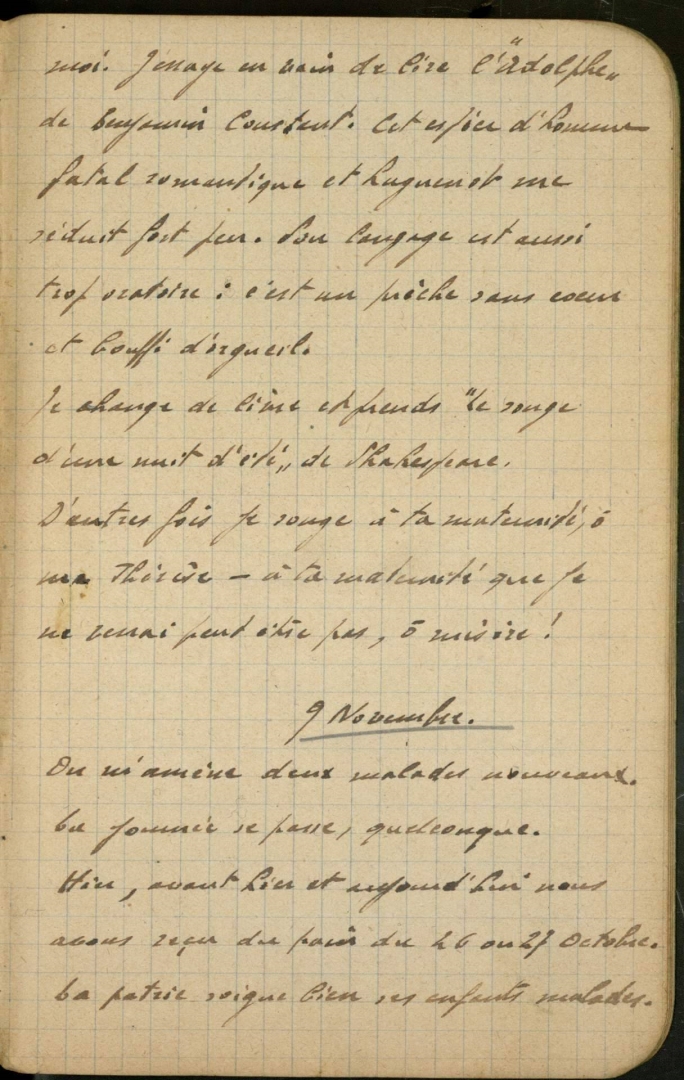 moi. J'essaye en vain de lire l'"Adolphe„
de Benjamin Constant. Cet espèce d'homme
fatal romantique et huguenot me
séduit fort peu. Son langage est aussi
trop oratoire : c'est un prêche sans coeur
et bouffi d'orgueil.
Je change de livre et prends "Le songe
d'une nuit d'été„ de Shakespeare.
D'autres fois je songe à ta maturité, ô
ma Thérèse – à ta maturité que je
ne verrai peut être pas, ô misère !
9 Novembre.
On m'amène deux malades nouveaux.
La journée se passe, quelconque.
Hier, avant hier et aujourd'hui nous
avons reçu du pain du 26 ou 27 Octobre.
La patrie soigne bien ses enfants malades.